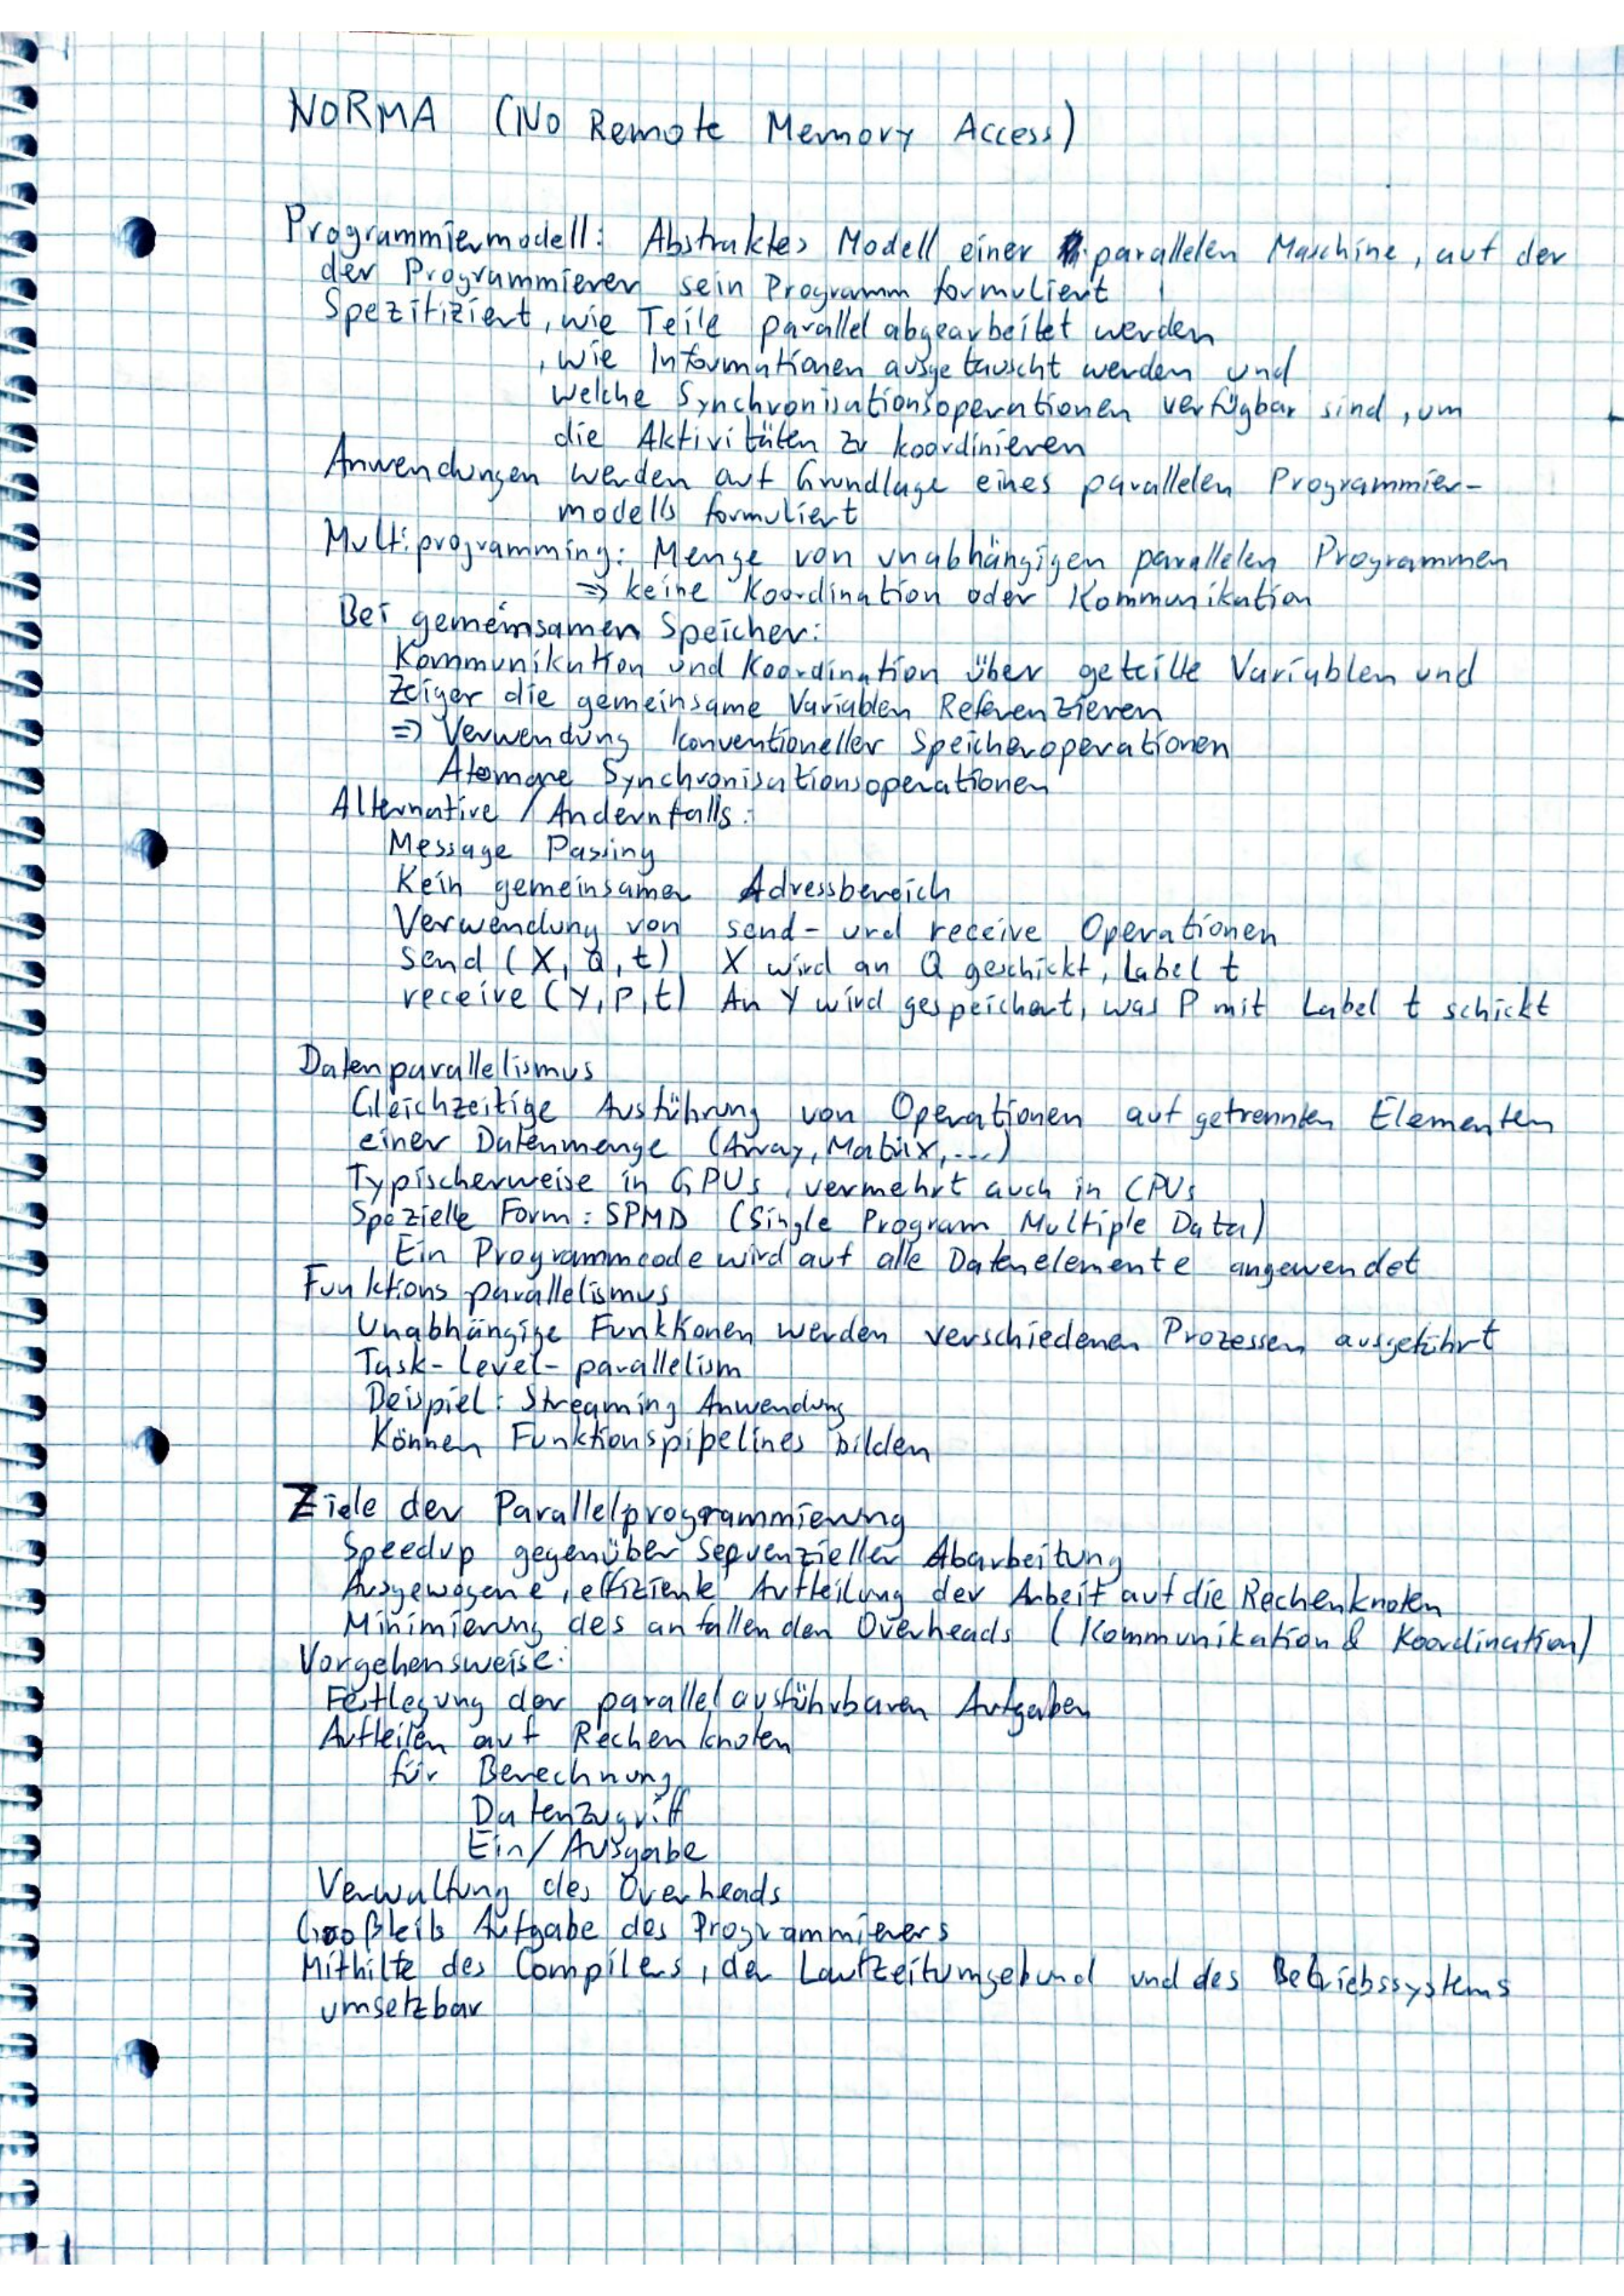 NORMA (No Remote Memory Access)
Programmiermodell: Abstraktes Modell einer parallelen Maschine, auf der
der Programmierer sein Programm formuliert
Spezifiziert, wie Teile parallel abgearbeitet werden
, wie Informationen ausgetauscht werden und
welche Synchronisationsoperationen verfügbar sind, um
die Aktivitäten zu koordinieren
Anwendungen werden auf Grundlage eines parallelen Programmier-
modells formuliert
Multiprogramming: Menge von unabhängigen parallelen Programmen
=> keine Koordination oder Kommunikation
Bei gemeinsamen Speicher:
Kommunikation und Koordination über geteilte Variablen und
Zeiger die gemeinsame Variablen Referenzieren
=> Verwendung konventioneller Speicheroperationen
Atomare Synchronisationsoperationen
Alternative / Andernfalls:
Message Passing
Kein gemeinsamer Adressbereich
Verwendung von send- und receive Operationen
send (X, Q, t) X wird an Q geschickt, Label t
receive (Y, P, t) An Y wird gespeichert, was P mit Label t schickt
Datenparallelismus
Gleichzeitige Ausführung von Operationen auf getrennten Elementen
einer Datenmenge (Array, Matrix, ...)
Typischerweise in GPUs, vermehrt auch in CPUs
Spezielle Form: SPMD (Single Program Multiple Data)
Ein Programmcode wird auf alle Datenelemente angewendet
Funktionsparallelismus
Unabhängige Funktionen werden verschiedenen Prozessen ausgeführt
Task-Level-parallelism
Beispiel: Streaming Anwendung
Können Funktionspipelines bilden
Ziele der Parallelprogrammierung
Speedup gegenüber sequenzieller Abarbeitung
Ausgewogene, effiziente Aufteilung der Arbeit auf die Rechenknoten
Minimierung des anfallenden Overheads (Kommunikation & Koordination)
Vorgehensweise:
Festlegung der parallel ausführbaren Aufgaben
Aufteilen auf Rechenknoten
für Berechnung
Datenzugriff
Ein/Ausgabe
Verwaltung des Overheads
Großteils Aufgabe des Programmierers
Mithilfe des Compilers, der Laufzeitumgebund und des Betriebssystems
umsetzbar